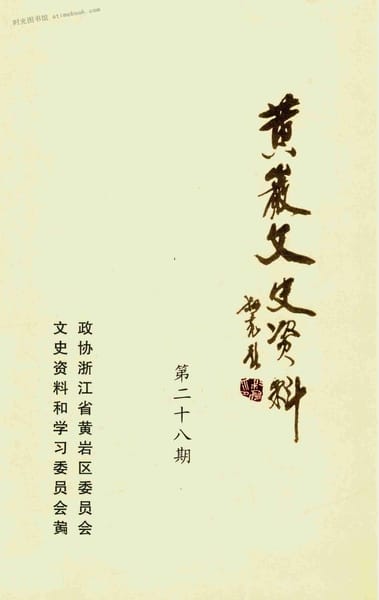 时光图书馆
黄巖文史资料
第二十八期
政协浙江省黄岩区委员会
文史资料和学习委员会